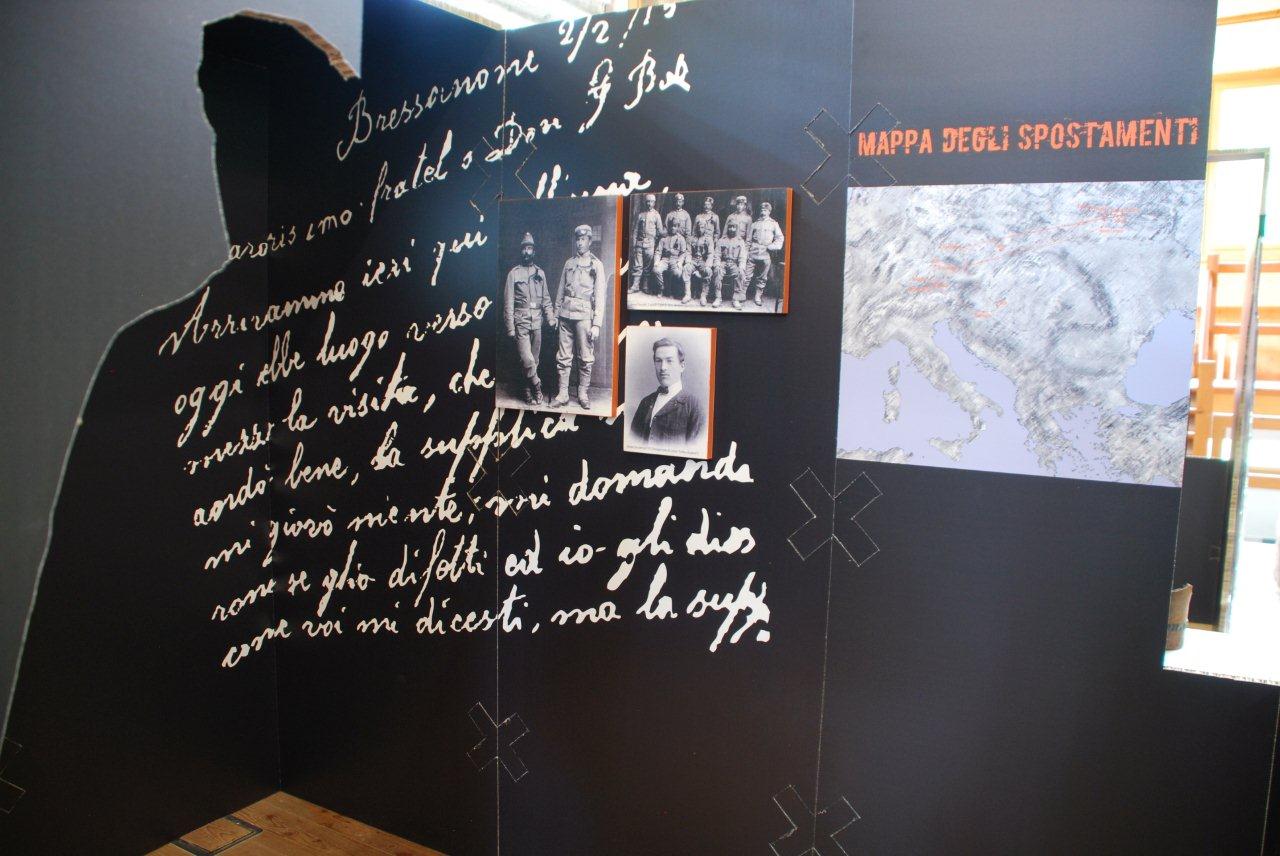 Bressanone 2/2/15
arorissimo fratel o Don G Bel
Arrivammo ieri qui
oggi ebbe luogo verso
messo la visita, che
andò bene, la supplica
mi giovò niente, mi domanda
rono se glio difetti ed io gli diss
come voi mi dicesti, ma la supp.
MAPPA DEGLI SPOSTAMENTI